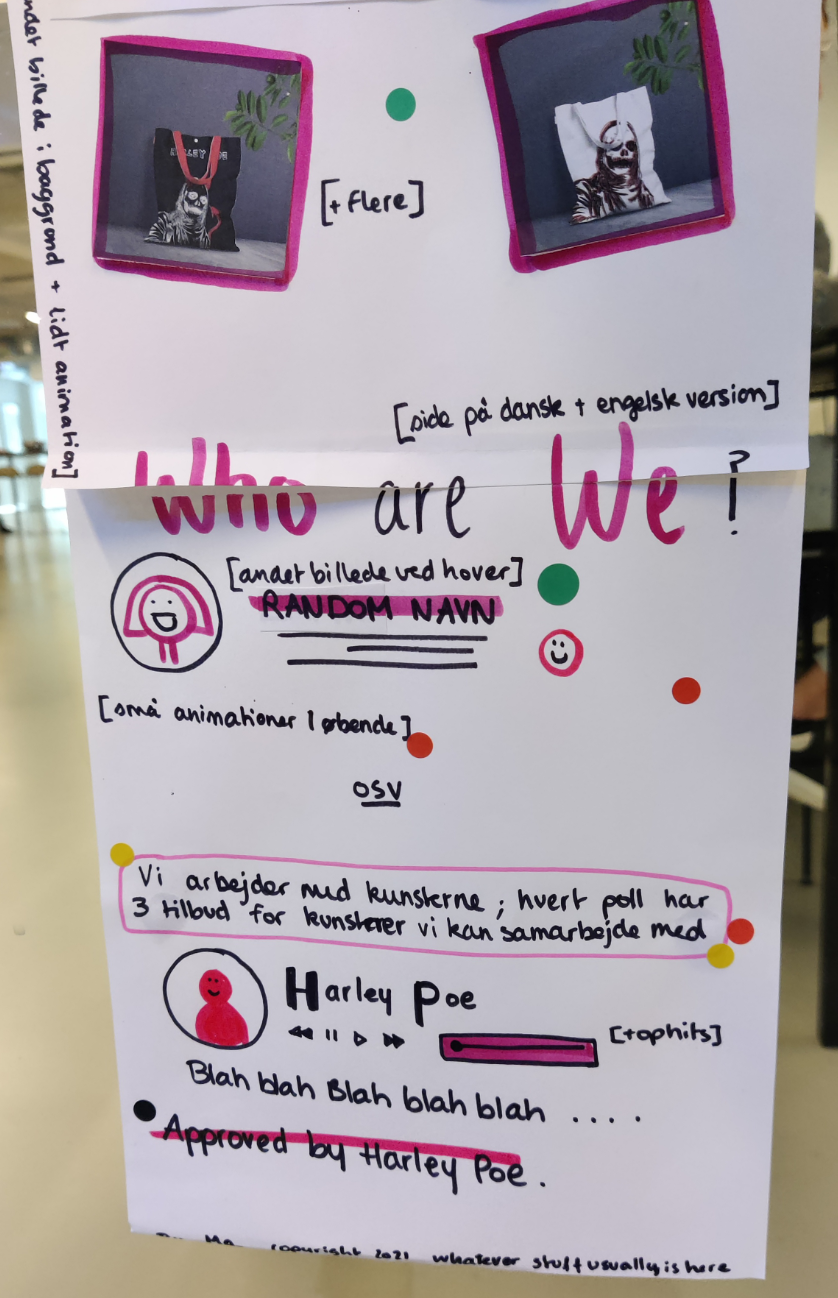 ndet billede i baggrund + lidt animation]
HARLEY POE
[+ flere]
[side på dansk + engelsk version]
Who are We?
[andet billede ved hover]
RANDOM NAVN
[små animationer løbende]
osv
Vi arbejder med kunsterne ; hvert poll har
3 tilbud for kunstere vi kan samarbejde med
Harley Poe
[tophits]
Blah blah Blah blah blah ....
Approved by Harley Poe.
copyright 2021 whatever stuff usually is here